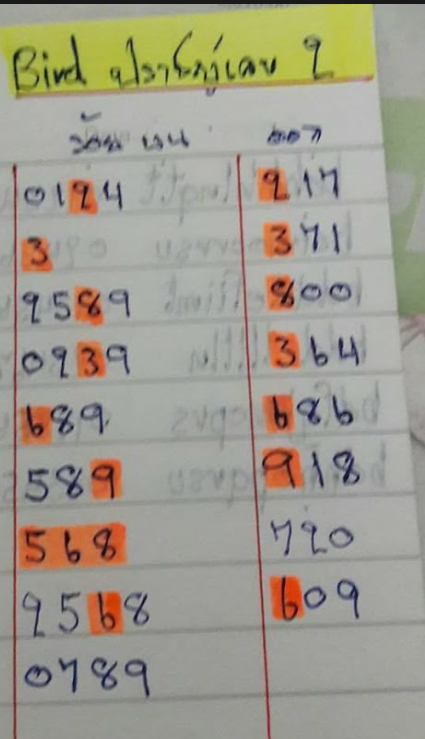 Bird 2
ร้อย บน ออก
0124 217
3 371
2589 800
0239 364
689 686
589 918
568 720
2568 609
0789